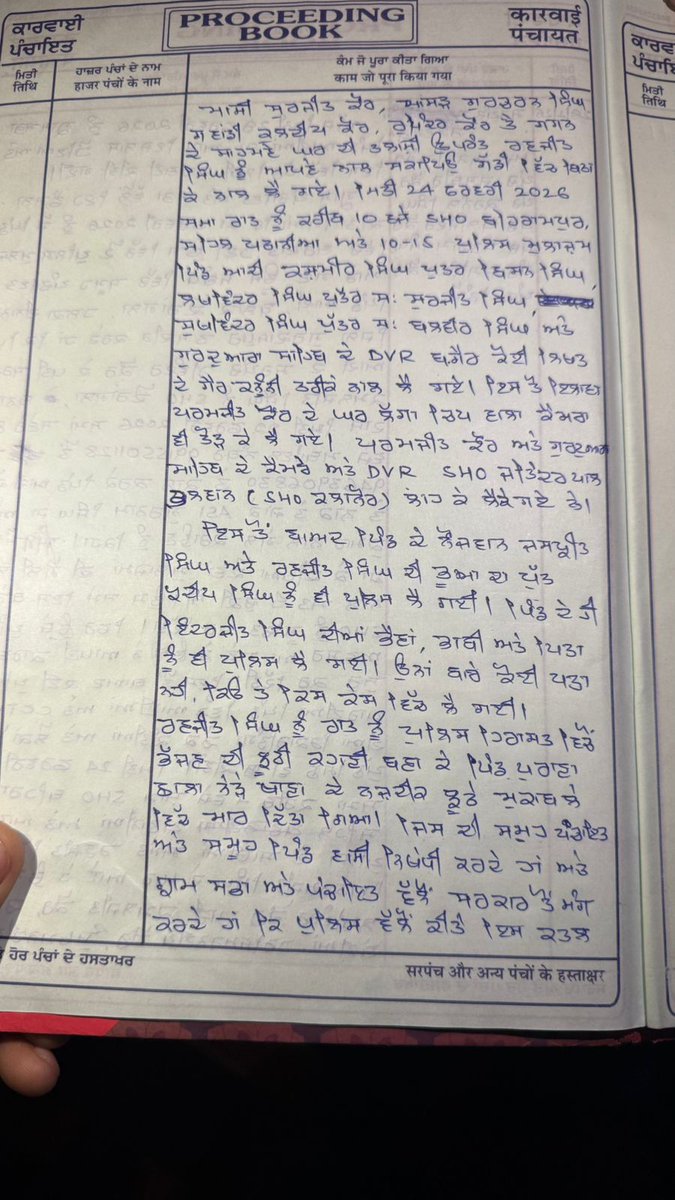 ਕਾਰਵਾਈ
ਪੰਚਾਇਤ
PROCEEDING
BOOK
कारवाई
पंचायत
ਮਿਤੀ
तिथि
ਹਾਜ਼ਰ ਪੰਚਾਂ ਦੇ ਨਾਮ
हाजर पंचों के नाम
ਕੰਮ ਜੋ ਪੂਰਾ ਕੀਤਾ ਗਿਆ
काम जो पूरा किया गया
ਮਾਸੀ ਸੁਰਜੀਤ ਕੌਰ, ਮਾਸੜ ਗੁਰਚਰਨ ਸਿੰਘ
ਗਵਾਂਢੀ ਕੁਲਦੀਪ ਕੌਰ, ਰੁਪਿੰਦਰ ਕੌਰ ਤੇ ਗਗਨ
ਦੇ ਸਾਹਮਣੇ ਘਰ ਦੀ ਤਲਾਸ਼ੀ ਉਪਰੰਤ ਰਣਜੀਤ
ਸਿੰਘ ਨੂੰ ਆਪਣੇ ਨਾਲ ਸਕਾਰਪਿਓ ਗੱਡੀ ਵਿੱਚ ਬਿਠਾ
ਕੇ ਨਾਲ ਲੈ ਗਏ। ਮਿਤੀ 24 ਫਰਵਰੀ 2026
ਸਮਾ ਰਾਤ ਨੂੰ ਕਰੀਬ 10 ਵਜੇ SHO ਬਹਿਰਾਮਪੁਰ,
ਸਾਹਿਲ ਪਠਾਨੀਆ ਅਤੇ 10-15 ਪੁਲਿਸ ਮੁਲਾਜਮ
ਪਿੰਡ ਆਈ ਕਸ਼ਮੀਰ ਸਿੰਘ ਪੁਤਰ ਬਿਸ਼ਨ ਸਿੰਘ,
ਲਖਵਿੰਦਰ ਸਿੰਘ ਪੁੱਤਰ ਸ: ਸੁਰਜੀਤ ਸਿੰਘ,
ਸੁਖਵਿੰਦਰ ਸਿੰਘ ਪੁੱਤਰ ਸ: ਬਲਵੀਰ ਸਿੰਘ ਅਤੇ
ਗੁਰਦੁਆਰਾ ਸਾਹਿਬ ਦੇ DVR ਬਗੈਰ ਕੋਈ ਲਿਖਤ
ਦੇ ਗੈਰ ਕਨੂੰਨੀ ਤਰੀਕੇ ਨਾਲ ਲੈ ਗਏ। ਇਸ ਤੋਂ ਇਲਾਵਾ
ਪਰਮਜੀਤ ਕੌਰ ਦੇ ਘਰ ਲੱਗਾ ਚਿਪ ਵਾਲਾ ਕੈਮਰਾ
ਵੀ ਤੋੜ ਕੇ ਲੈ ਗਏ। ਪਰਮਜੀਤ ਕੌਰ ਅਤੇ ਗੁਰਦੁਆਰਾ
ਸਾਹਿਬ ਦੇ ਕੈਮਰੇ ਅਤੇ DVR SHO ਜਤਿੰਦਰਪਾਲ
(SHO ਕਲਾਨੌਰ) ਲਾਹ ਕੇ ਲੈਕੇ ਗਏ ਨੇ।
ਇਸ ਤੋਂ ਬਾਅਦ ਪਿੰਡ ਦੇ ਨੌਜਵਾਨ ਜਸਪ੍ਰੀਤ
ਸਿੰਘ ਅਤੇ ਰਣਜੀਤ ਸਿੰਘ ਦੀ ਭੂਆ ਦਾ ਪੁੱਤ
ਪ੍ਰਦੀਪ ਸਿੰਘ ਨੂੰ ਵੀ ਪੁਲਿਸ ਲੈ ਗਈ। ਪਿੰਡ ਦੇ ਹੀ
ਇੰਦਰਜੀਤ ਸਿੰਘ ਦੀਆਂ ਭੈਣਾਂ, ਭਾਬੀ ਅਤੇ ਪਿਤਾ
ਨੂੰ ਵੀ ਪੁਲਿਸ ਲੈ ਗਈ। ਉਨਾਂ ਬਾਰੇ ਕੋਈ ਪਤਾ
ਨਹੀ, ਕਿਉਂ ਤੇ ਕਿਸ ਕੇਸ ਵਿੱਚ ਲੈ ਗਈ।
ਰਣਜੀਤ ਸਿੰਘ ਨੂੰ ਰਾਤ ਨੂੰ ਪੁਲਿਸ ਹਿਰਾਸਤ ਵਿੱਚੋਂ
ਭੱਜਣ ਦੀ ਝੂਠੀ ਕਹਾਣੀ ਬਣਾ ਕੇ ਪਿੰਡ ਪੁਰਾਣਾ
ਸ਼ਾਲਾ ਨੇੜੇ ਥਾਣਾ ਦੇ ਨਜ਼ਦੀਕ ਝੂਠੇ ਮੁਕਾਬਲੇ
ਵਿੱਚ ਮਾਰ ਦਿੱਤਾ ਗਿਆ। ਜਿਸ ਦੀ ਸਮੂਹ ਪੰਚਾਇਤ
ਅਤੇ ਸਮੂਹ ਪਿੰਡ ਵਾਸੀ ਨਿਖੇਧੀ ਕਰਦੇ ਹਾਂ ਅਤੇ
ਗ੍ਰਾਮ ਸਭਾ ਅਤੇ ਪੰਚਾਇਤ ਵੱਲੋਂ ਸਰਕਾਰ ਤੋਂ ਮੰਗ
ਕਰਦੇ ਹਾਂ ਕਿ ਪੁਲਿਸ ਵੱਲੋਂ ਕੀਤੇ ਇਸ ਕਤਲ
ਹੋਰ ਪੰਚਾਂ ਦੇ ਹਸਤਾਖਰ
सरपंच और अन्य पंचों के हस्ताक्षर
ਕਾਰਵਾ
पंचाइ
ਮਿਤੀ
तिथि